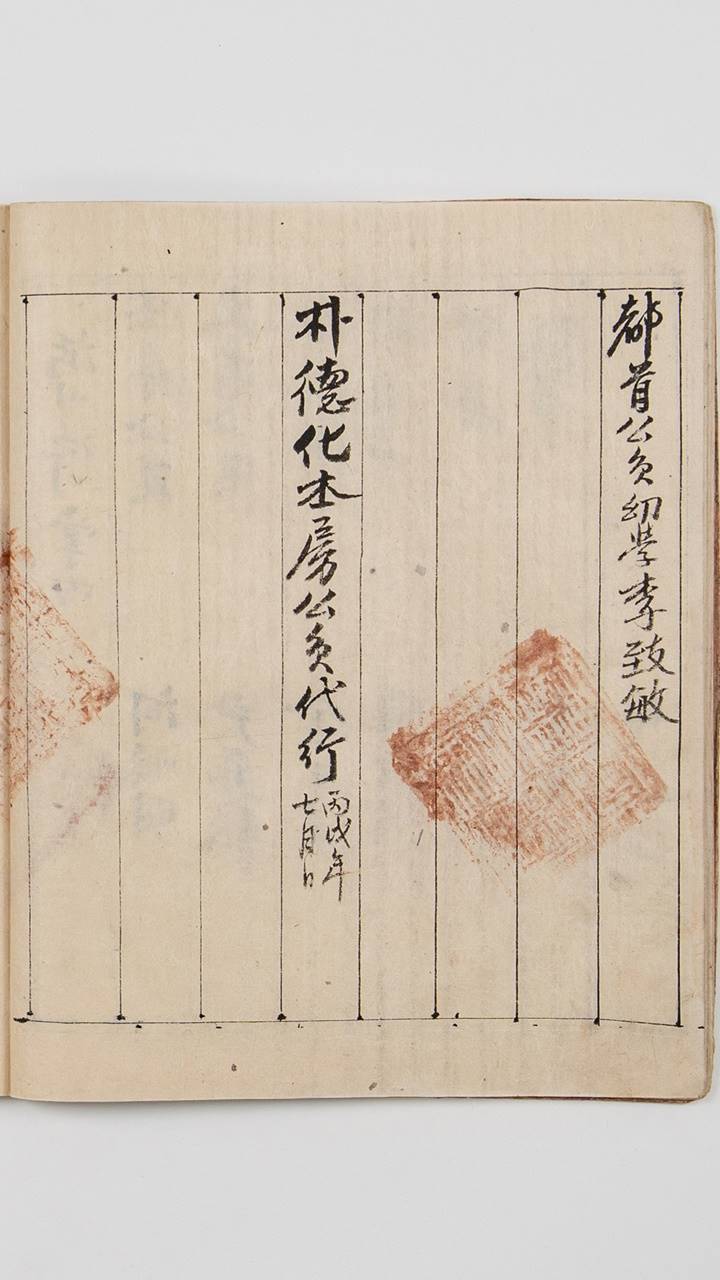 都首公員幼學李致敏
朴德化本房公員代行
丙戌年
七月日